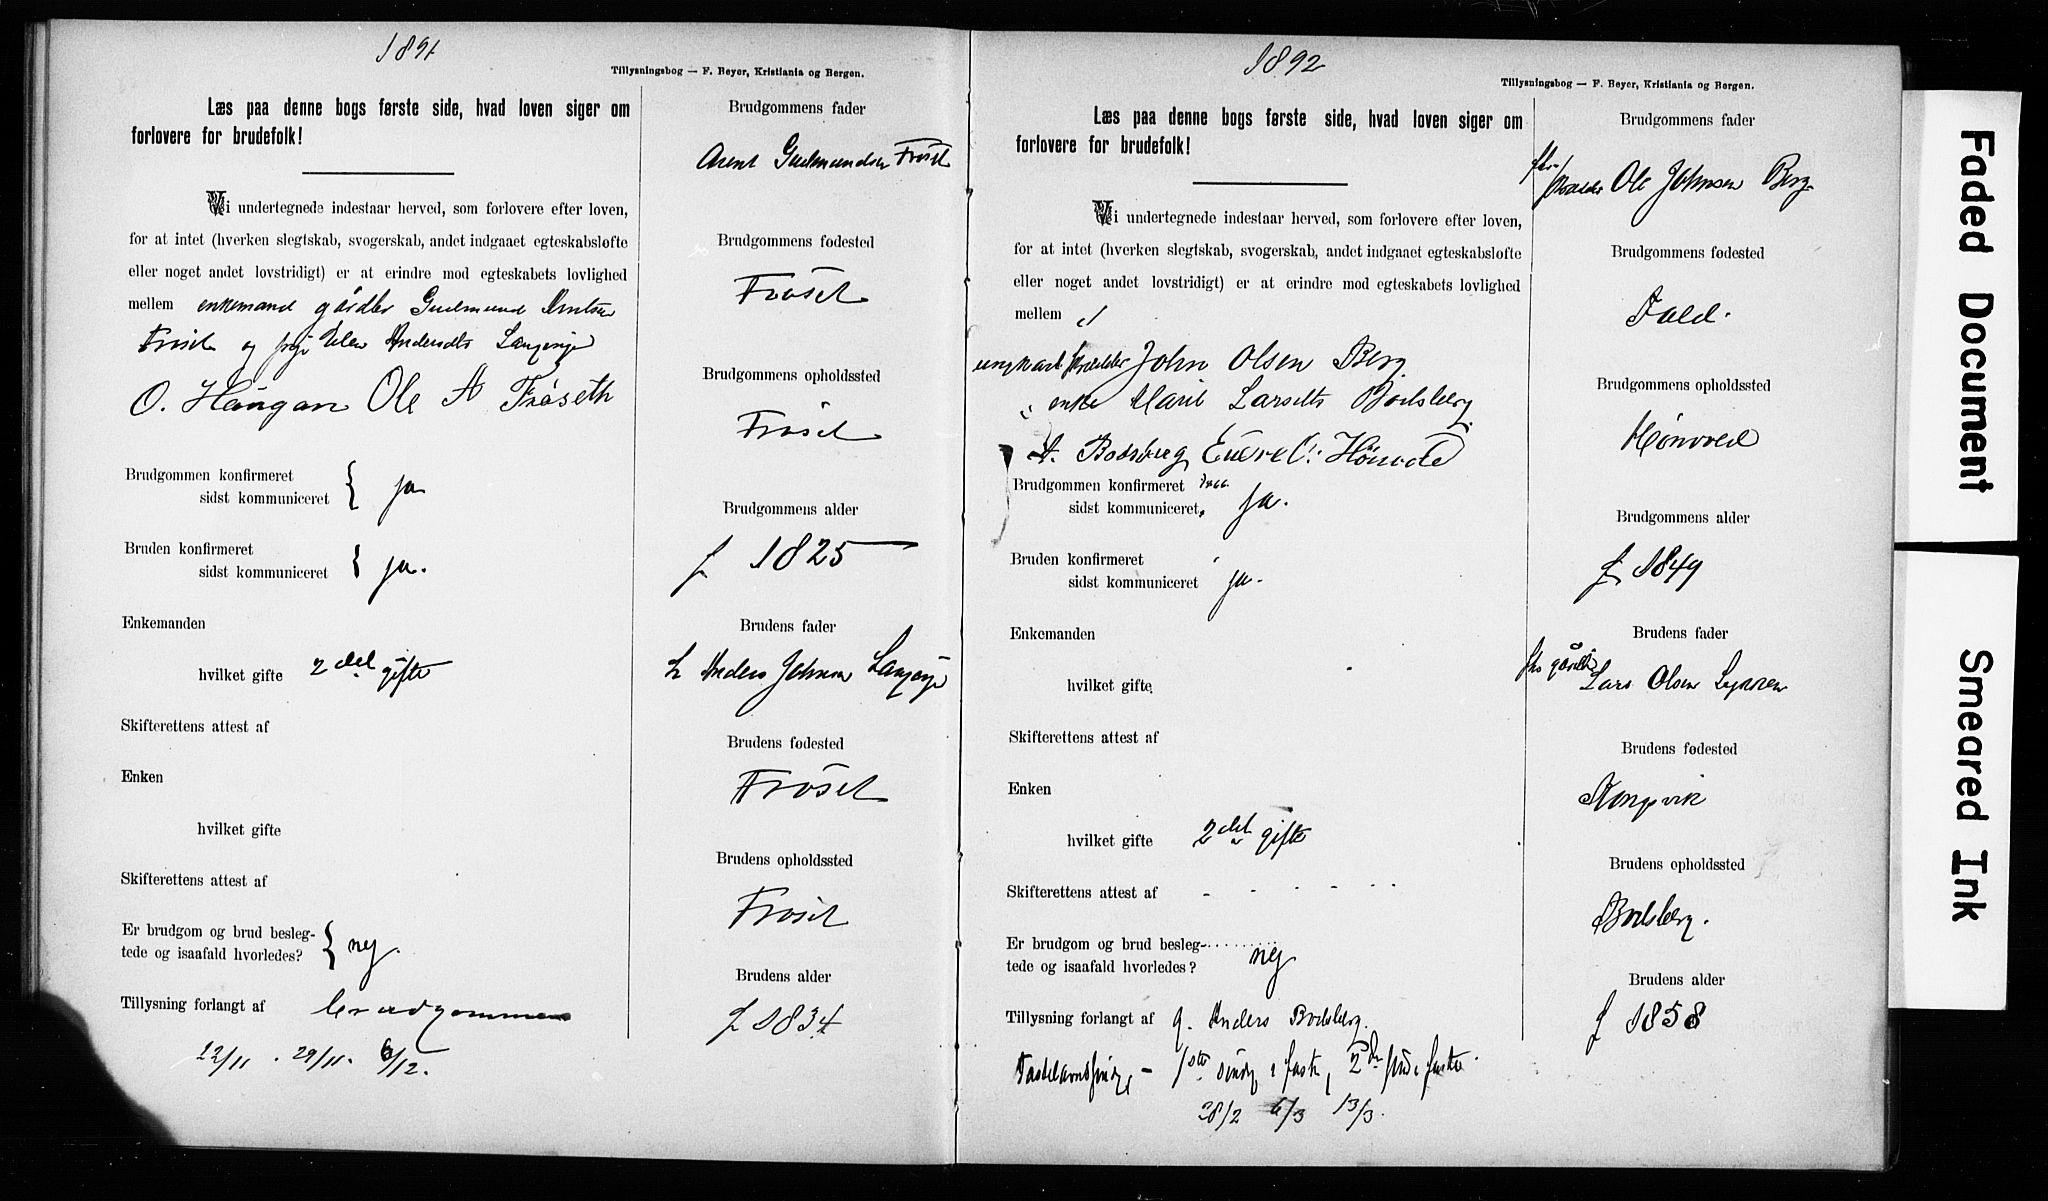 1891
Tillysningsbog — F. Beyer, Kristiania og Bergen.
Læs paa denne bogs første side, hvad loven siger om
forlovere for brudefolk!
Vi undertegnede indestaar herved, som forlovere efter loven,
for at intet (hverken slegtskab, svogerskab, andet indgaaet egteskabsløfte
eller noget andet lovstridigt) er at erindre mod egteskabets lovlighed
mellem enkemand gårdbr Gudmund Arntsen
Frøset og pige Andersdtr
O. Haugan Ole A Frøseth
Brudgommen konfirmeret
sidst kommuniceret } ja
Bruden konfirmeret
sidst kommuniceret } ja.
Enkemanden
hvilket gifte 2det gifte
Skifterettens attest af
Enken
hvilket gifte
Skifterettens attest af
Er brudgom og brud besleg-
tede og isaafald hvorledes? } nej.
Tillysning forlangt af brudgommen
22/11 . 29/11 . 6/12.
Brudgommens fader
Arent Gudmundsen Frøset
Brudgommens fødested
Frøset
Brudgommens opholdssted
Frøset
Brudgommens alder
f 1825
Brudens fader
Anders Johnsen
Brudens fødested
Frøset
Brudens opholdssted
Frøset
Brudens alder
f 1834
1892
Tillysningsbog — F. Beyer, Kristiania og Bergen.
Læs paa denne bogs første side, hvad loven siger om
forlovere for brudefolk!
Vi undertegnede indestaar herved, som forlovere efter loven,
for at intet (hverken slegtskab, svogerskab, andet indgaaet egteskabsløfte
eller noget andet lovstridigt) er at erindre mod egteskabets lovlighed
mellem
ungkarl John Olsen Berg
enke Marit Larsdtr Bodsberg
A. Bodsberg
Brudgommen konfirmeret
sidst kommuniceret, ja.
Bruden konfirmeret
sidst kommuniceret ja.
Enkemanden
hvilket gifte
Skifterettens attest af
Enken
hvilket gifte 2det gifte
Skifterettens attest af - - - - - -
Er brudgom og brud besleg-
tede og isaafald hvorledes? nej
Tillysning forlangt af g. Anders Bodsberg.
Fastelavnssøndag – 1ste søndg i faste, 2den sønd i faste.
28/2 6/3 13/3.
Brudgommens fader
Ole Johnsen Berg
Brudgommens fødested
Brudgommens opholdssted
Brudgommens alder
f 1849
Brudens fader
Lars Olsen
Brudens fødested
Kongsvik
Brudens opholdssted
Bodsberg.
Brudens alder
f 1858
Faded Document
Smeared Ink